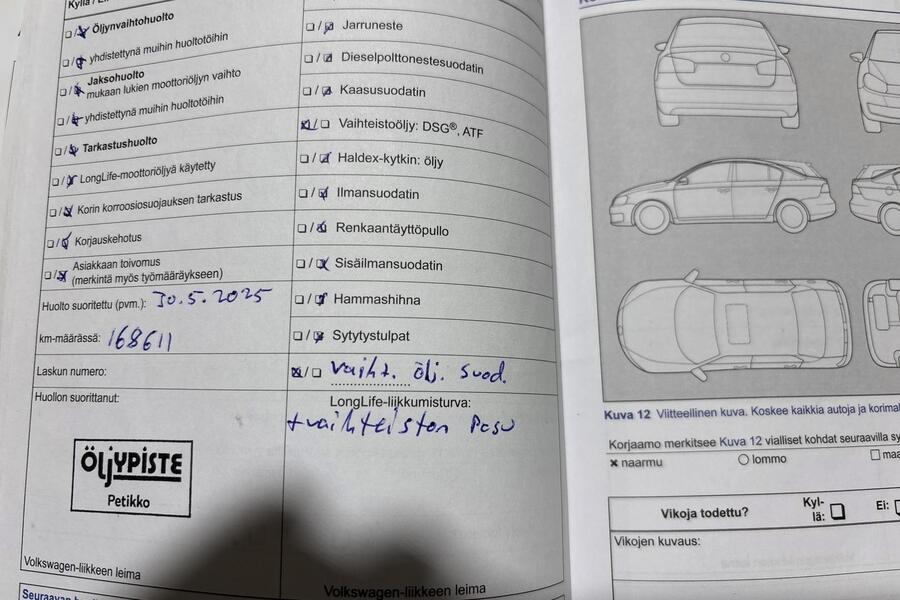 Kyllä / Ei
☐/☒ Öljynvaihtohuolto
☐/☒ yhdistettynä muihin huoltotöihin
☐/☒ Jaksohuolto
mukaan lukien moottoriöljyn vaihto
☐/☒ yhdistettynä muihin huoltotöihin
☐/☒ Tarkastushuolto
☐/☒ LongLife-moottoriöljyä käytetty
☐/☒ Korin korroosiosuojauksen tarkastus
☐/☒ Korjauskehotus
☐/☒ Asiakkaan toivomus
(merkintä myös työmääräykseen)
Huolto suoritettu (pvm.): 30.5.2025
km-määrässä: 168611
Laskun numero:
Huollon suorittanut:
ÖLJYPISTE
Petikko
Volkswagen-liikkeen leima
☐/☒ Jarruneste
☐/☒ Dieselpolttonestesuodatin
☐/☒ Kaasusuodatin
☒/☐ Vaihteistoöljy: DSG®, ATF
☐/☒ Haldex-kytkin: öljy
☐/☒ Ilmansuodatin
☐/☒ Renkaantäyttöpullo
☐/☒ Sisäilmansuodatin
☐/☒ Hammashihna
☐/☒ Sytytystulpat
☒/☐ vaiht. ölj. suod.
LongLife-liikkumisturva:
+vaihteiston Pesu
Volkswagen-liikkeen leima
Kuva 12 Viitteellinen kuva. Koskee kaikkia autoja ja
Korjaamo merkitsee Kuva 12 vialliset kohdat seuraavilla
× naarmu ○ lommo ☐
Vikoja todettu? Kyl-
lä: ☐ Ei: ☐
Vikojen kuvaus: